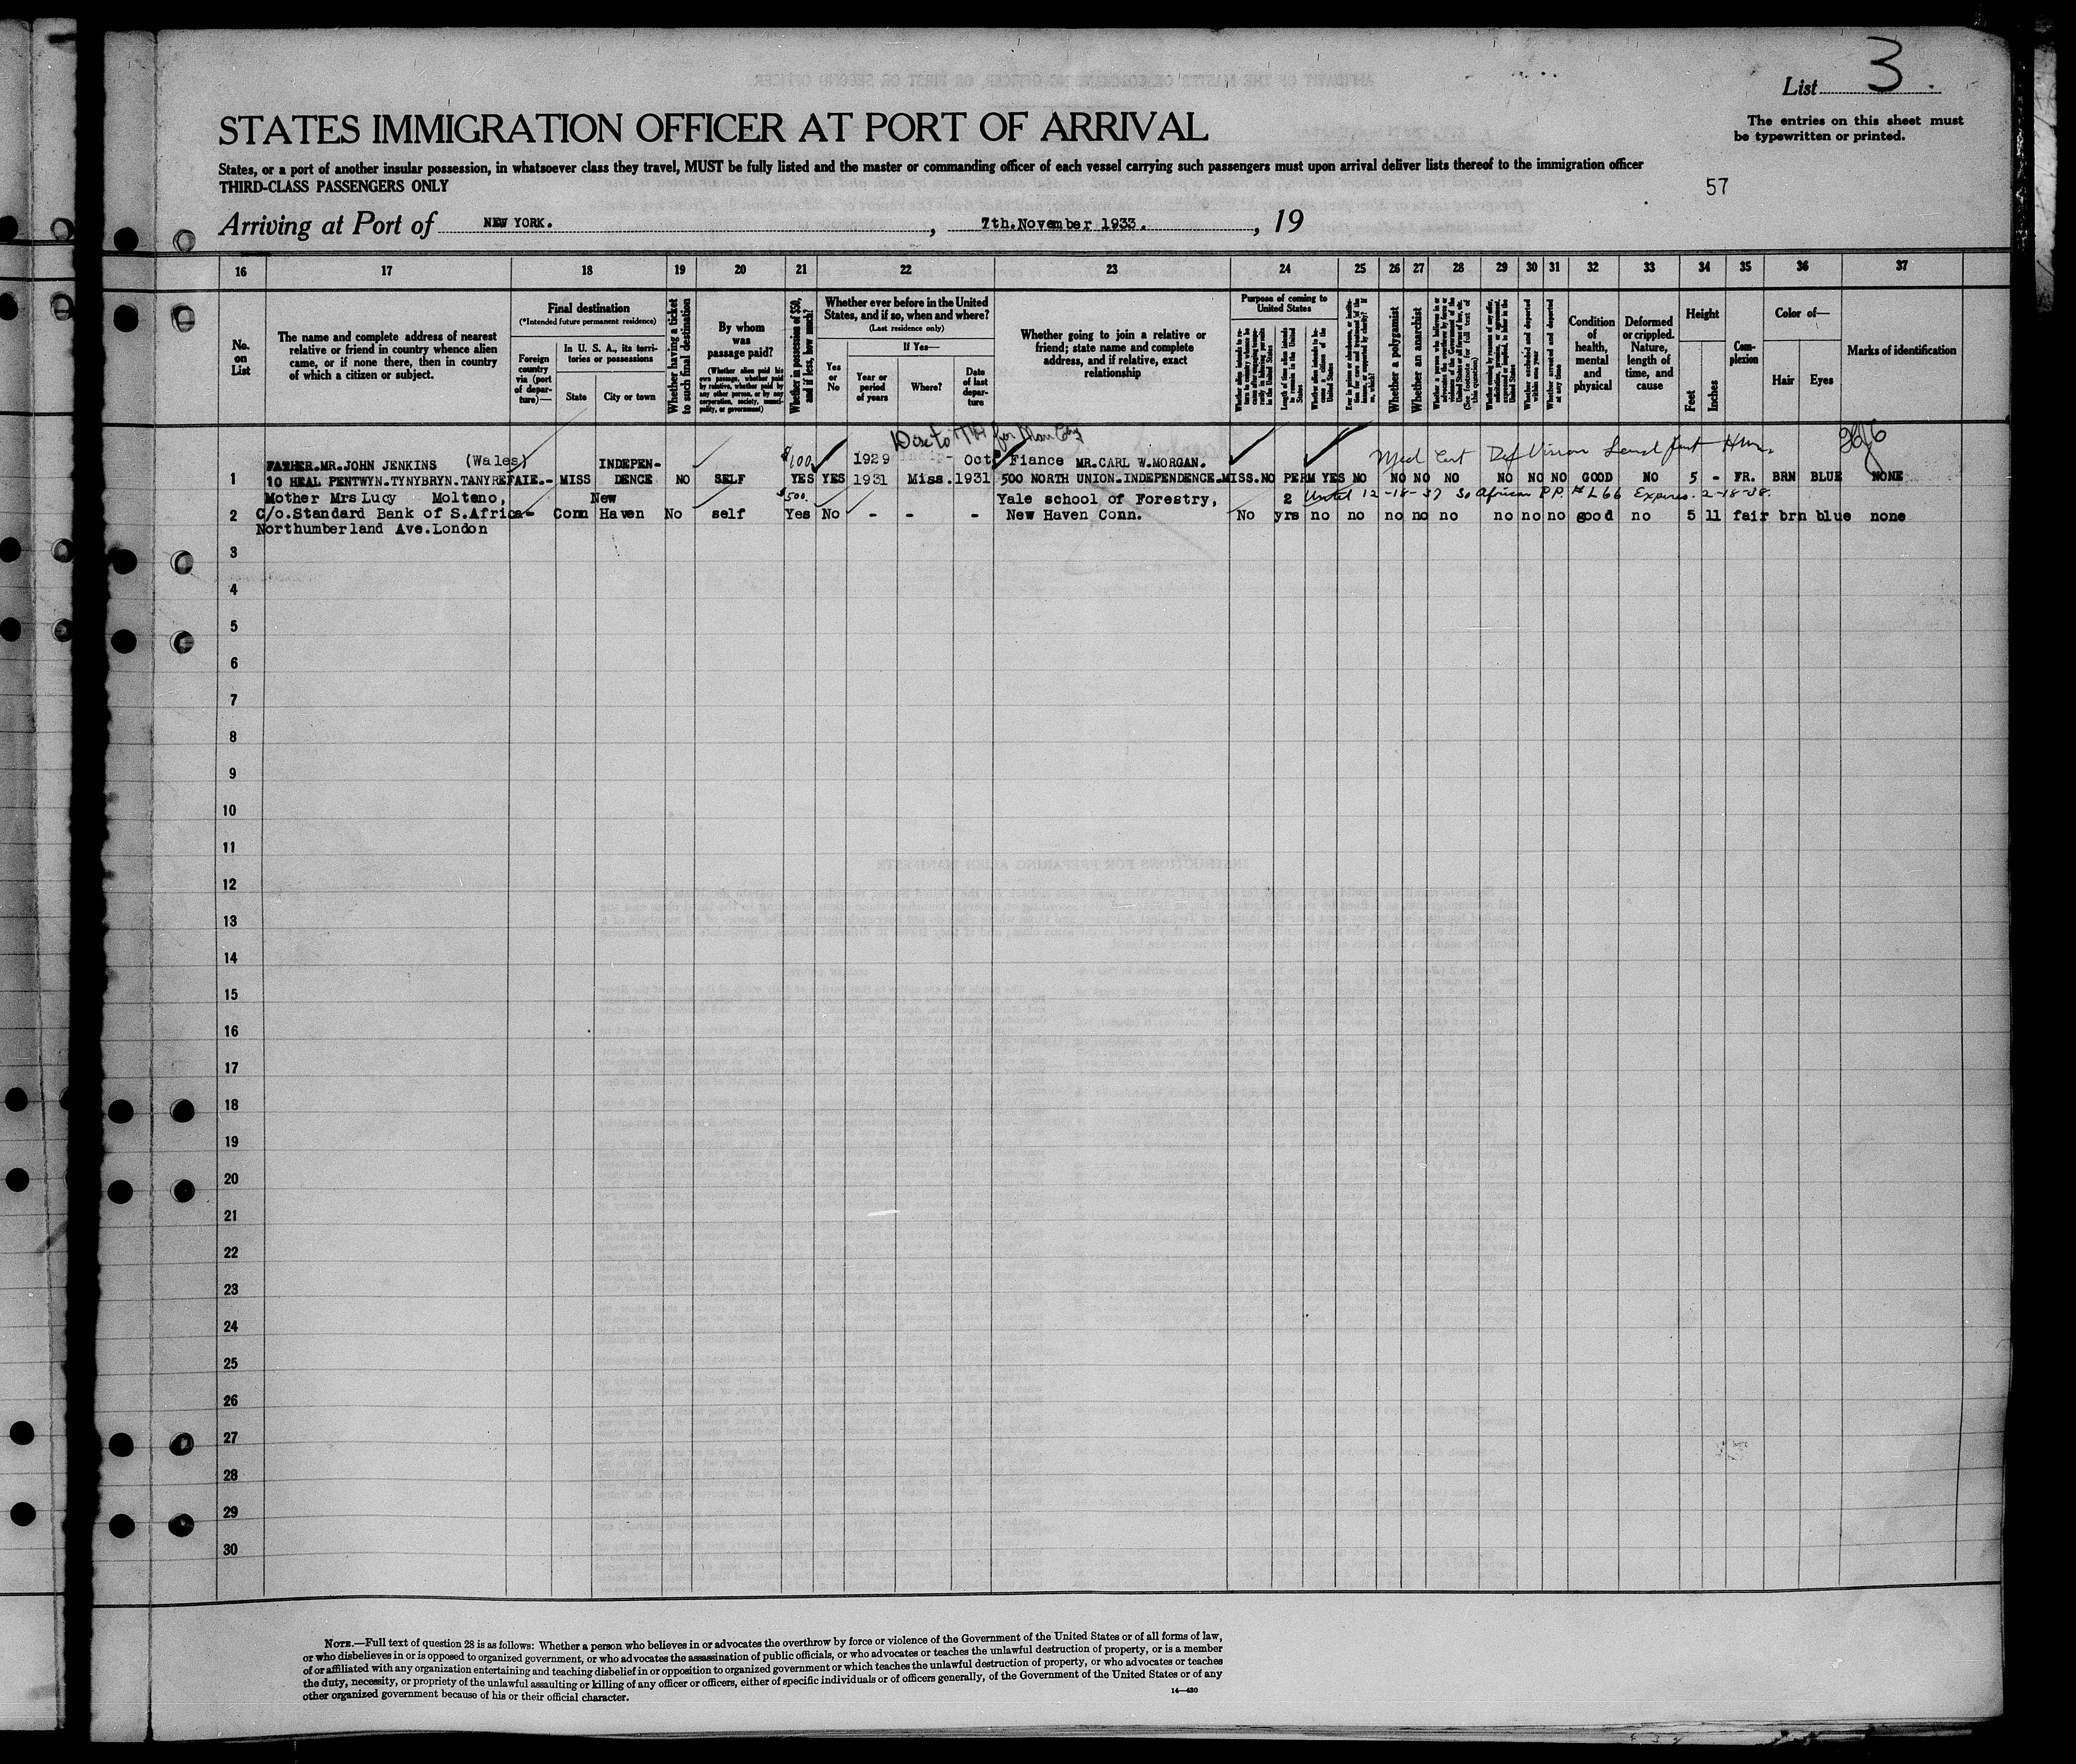 List 3.
The entries on this sheet must
be typewritten or printed.
STATES IMMIGRATION OFFICER AT PORT OF ARRIVAL
States, or a port of another insular possession, in whatsoever class they travel, MUST be fully listed and the master or commanding officer of each vessel carrying such passengers must upon arrival deliver lists thereof to the immigration officer
THIRD-CLASS PASSENGERS ONLY
57
Arriving at Port of NEW YORK. , 7th.November 1933. , 19
16 17 18 19 20 21 22 23 24 25 26 27 28 29 30 31 32 33 34 35 36 37
No.
on
List
The name and complete address of nearest
relative or friend in country whence alien
came, or if none there, then in country
of which a citizen or subject.
Final destination
(*Intended future permanent residence)
Foreign
country
via (port
of depar-
ture)—
In U. S. A., its terri-
tories or possessions
State
City or town
Whether having a ticket
to such final destination
By whom
was
passage paid?
(Whether alien paid his
own passage, whether paid
by relative, whether paid by
any other person, or by any
corporation, society, munici-
pality, or government)
Whether in possession of $50,
and if less, how much?
Whether ever before in the United
States, and if so, when and where?
(Last residence only)
Yes
or
No
If Yes—
Year or
period
of years
Where?
Date
of last
depar-
ture
Whether going to join a relative or
friend; state name and complete
address, and if relative, exact
relationship
Purpose of coming to
United States
Whether a polygamist
Whether an anarchist
Whether arrested and deported
within one year
Whether arrested and deported
at any time
Condition
of
health,
mental
and
physical
Deformed
or crippled.
Nature,
length of
time, and
cause
Height
Feet
Inches
Com-
plexion
Color of—
Hair
Eyes
Marks of identification
for
Med Cert Def Vision
FATHER.MR.JOHN JENKINS (Wales) INDEPEN- $100 1929 Oct Fiance MR.CARL W.MORGAN.
1 10 HEAL PENTWYN.TYNYBRYN.TANYREFAIE.- MISS DENCE NO SELF YES YES 1931 Miss. 1931 500 NORTH UNION.INDEPENDENCE.MISS. NO PERM YES NO NO NO NO NO NO NO GOOD NO 5 - FR. BRN BLUE NONE
Mother Mrs Lucy Molteno, New $500. Yale school of Forestry, 2 Until 12-18-37 So African P.P. # L66 Expires. 2-18-38.
2 C/o.Standard Bank of S.Africa- Conn Haven No self Yes No - - - New Haven Conn. No yrs no no no no no no no no good no 5 11 fair brn blue none
Northumberland Ave.London
3
4
5
6
7
8
9
10
11
12
13
14
15
16
17
18
19
20
21
22
23
24
25
26
27
28
29
30
NOTE.—Full text of question 28 is as follows: Whether a person who believes in or advocates the overthrow by force or violence of the Government of the United States or of all forms of law,
or who disbelieves in or is opposed to organized government, or who advocates the assassination of public officials, or who advocates or teaches the unlawful destruction of property, or is a member
of or affiliated with any organization entertaining and teaching disbelief in or opposition to organized government or which teaches the unlawful destruction of property, or who advocates or teaches
the duty, necessity, or propriety of the unlawful assaulting or killing of any officer or officers, either of specific individuals or of officers generally, of the Government of the United States or of any
other organized government because of his or their official character.
14—430